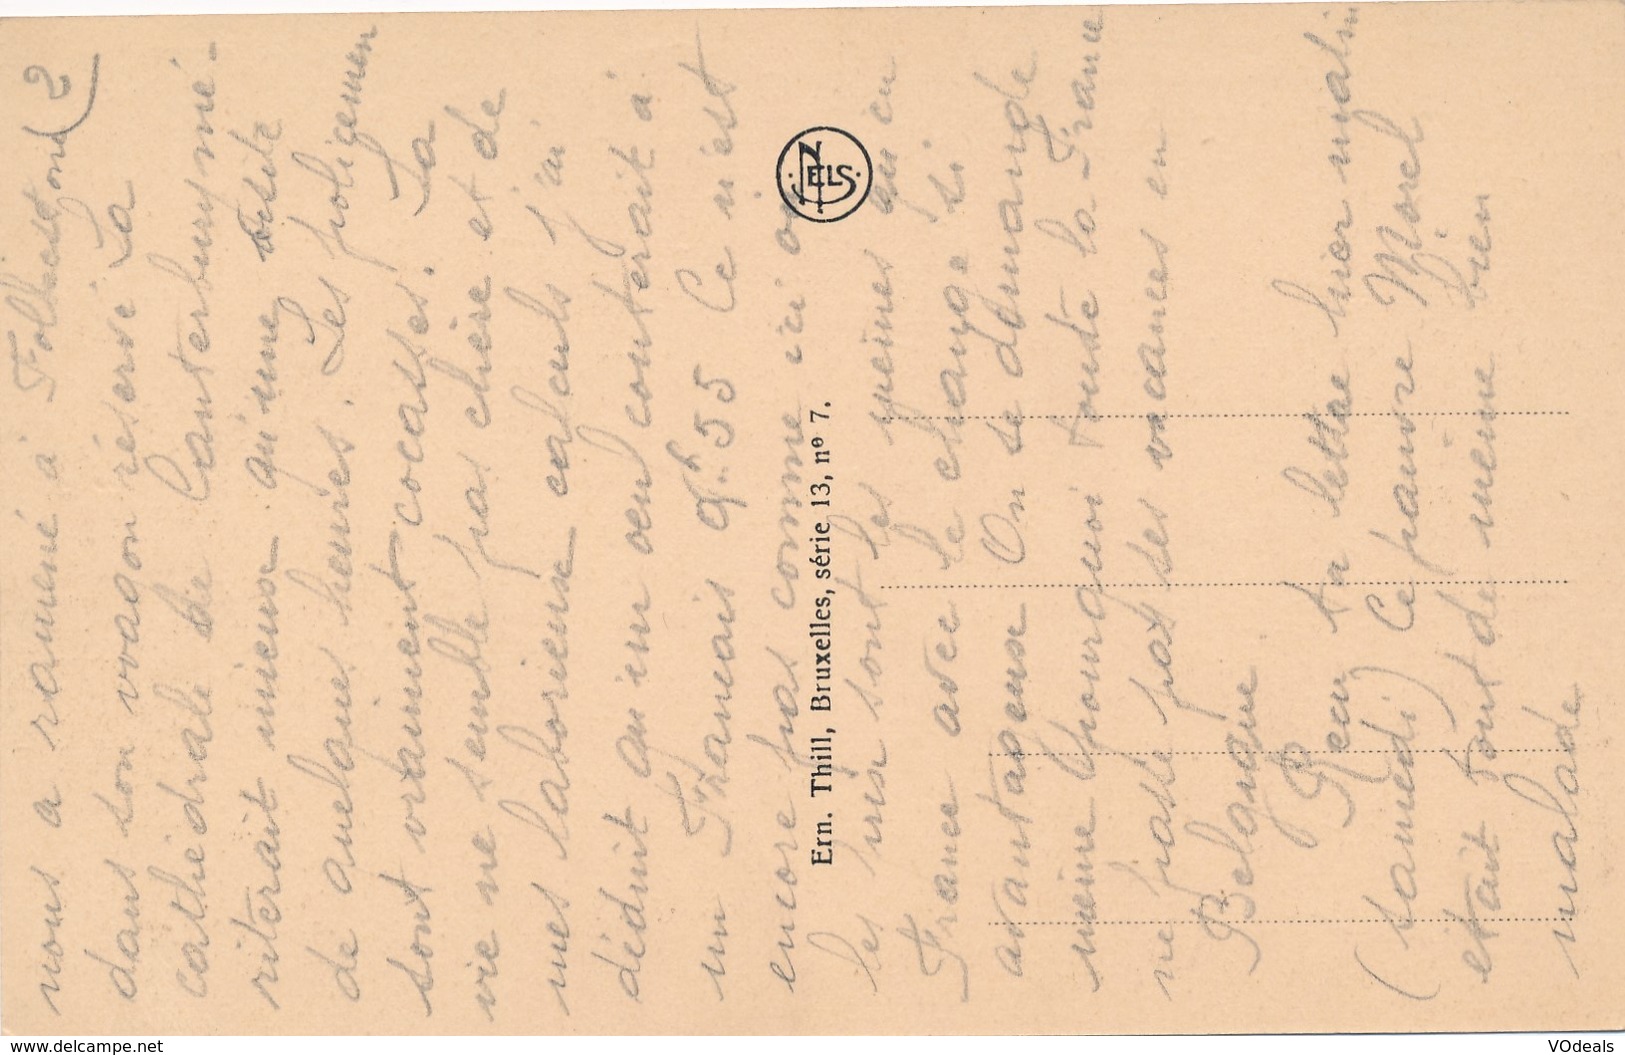 nous a ramené à Folkestone) 2
dans son wagon réservé La
cathédrale de Canterbury mé-
riterait mieux qu'une visite
de quelques heures. Les policemen
sont vraiment cocasses. La
vie ne semble pas chère et de
mes laborieux calculs j'ai
déduit qu'un oeuf couterait à
un Français 0fr.55 Ce n'est
encore pas comme ici où
les prix sont les mêmes qu'en
France avec le change si
avantageux On se demande
même pourquoi toute la France
ne passe pas ses vacances en
Belgique
Reçu ta lettre hier matin
(samedi) Ce pauvre Morel
etait tout de même bien
malade
Ern. Thill, Bruxelles, série 13, nº 7.
NELS
www.delcampe.net
VOdeals